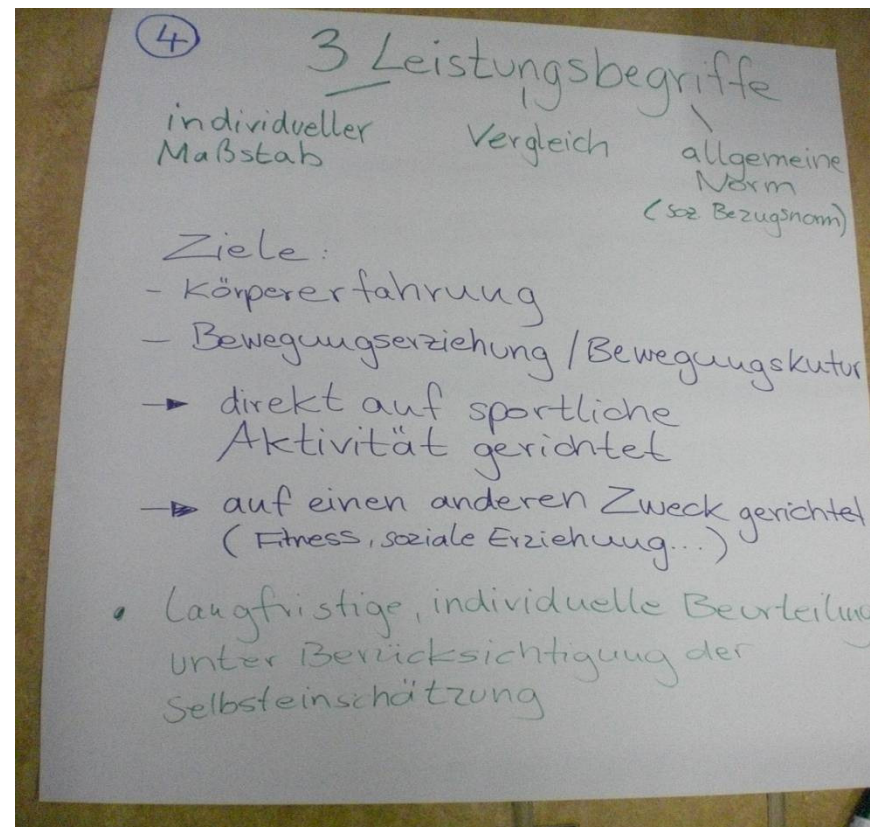 4
3 Leistungsbegriffe
individueller
Maßstab
Vergleich
allgemeine
Norm
(soz Bezugsnorm)
Ziele:
- Körpererfahrung
- Bewegungserziehung / Bewegungskutur
→ direkt auf sportliche
Aktivität gerichtet
→ auf einen anderen Zweck gerichtet
(Fitness, soziale Erziehung...)
• Langfristige, individuelle Beurteilung
unter Berücksichtigung der
Selbsteinschätzung